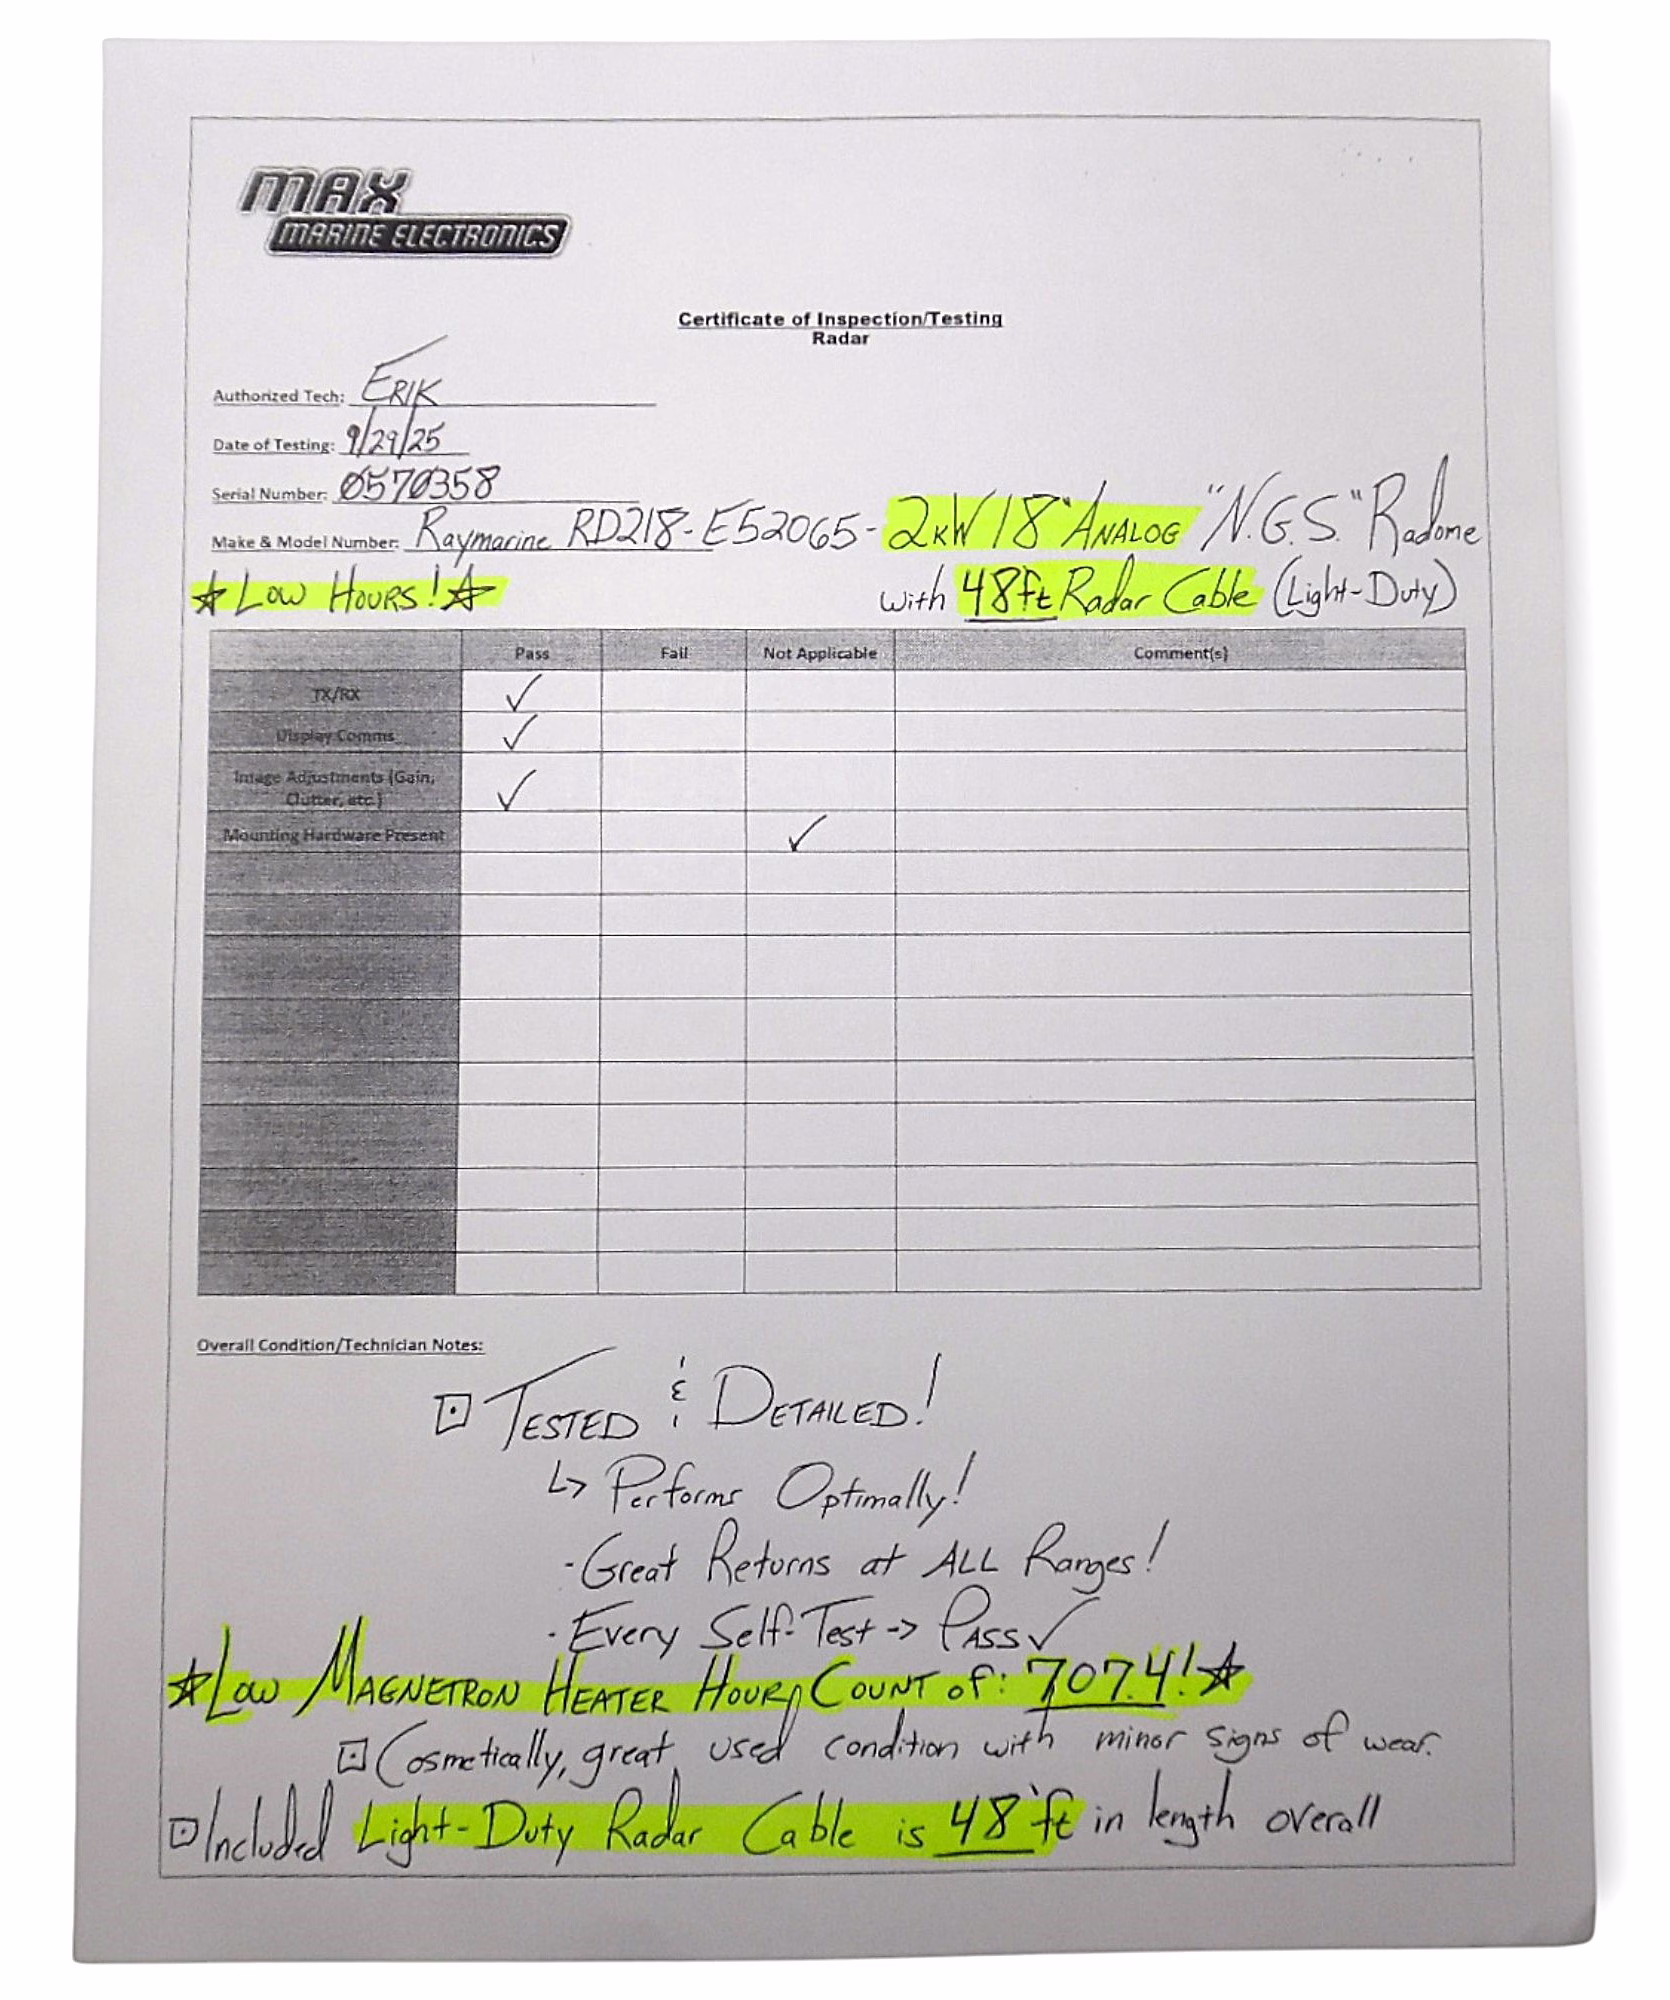 MAX
MARINE ELECTRONICS
Certificate of Inspection/Testing
Radar
Authorized Tech: ERIK
Date of Testing: 9/29/25
Serial Number: 0570358
Make & Model Number: Raymarine RD218-E52065-2KW 18" ANALOG "N.G.S." Radome
☆LOW HOURS!☆ with 48ft Radar Cable (Light-Duty)
Pass Fail Not Applicable Comment(s)
TX/RX ✓
Display Comms ✓
Image Adjustments (Gain,
Clutter, etc.) ✓
Mounting Hardware Present ✓
Overall Condition/Technician Notes:
⊡ TESTED & DETAILED!
↳ Performs Optimally!
- Great Returns at ALL Ranges!
- Every Self-Test -> PASS ✓
☆LOW MAGNETRON HEATER HOUR COUNT of: 707.4!☆
⊡ Cosmetically, great used condition with minor signs of wear.
⊡ Included Light-Duty Radar Cable is 48'ft in length overall